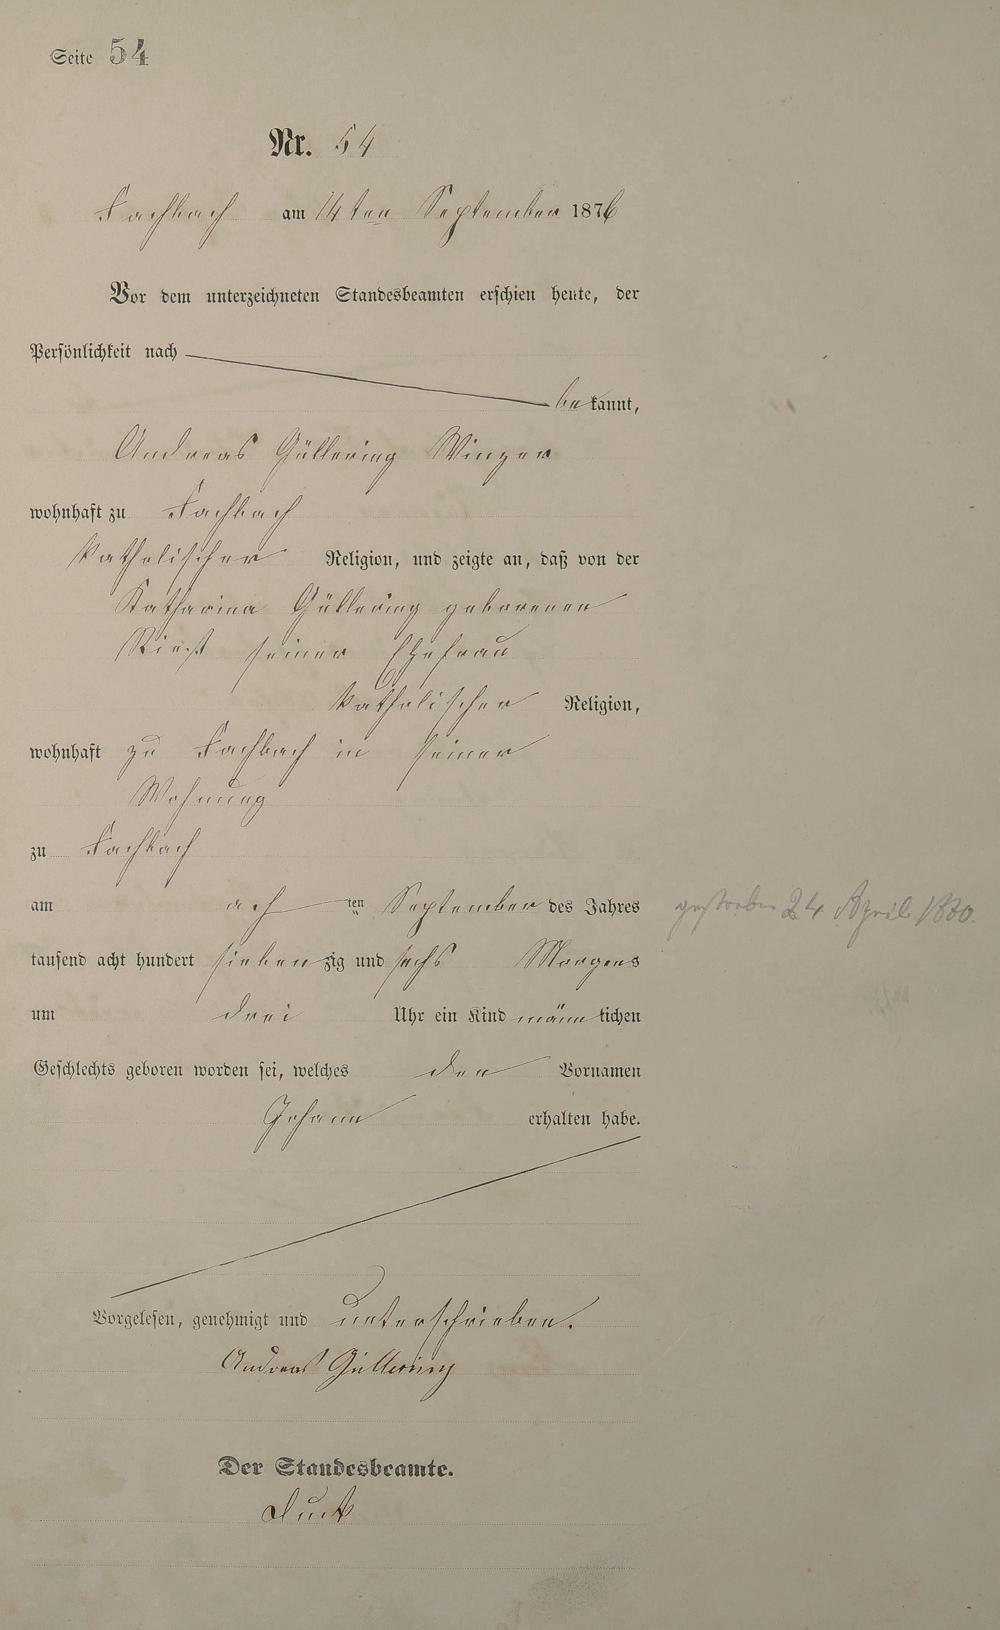 Seite 54
Nr. 54
Fachbach am 14ten September 1876
Vor dem unterzeichneten Standesbeamten erschien heute, der
Persönlichkeit nach
bekannt,
Andreas Güllering Winzer
wohnhaft zu Fachbach
katholischer Religion, und zeigte an, daß von der
Katharina Güllering geborenen
seiner Ehefrau
katholischer Religion,
wohnhaft zu Fachbach in seiner
Wohnung
zu Fachbach
am acht ten September des Jahres
gestorben 24 April
tausend acht hundert siebenzig und sechs Morgens
um drei Uhr ein Kind männlichen
Geschlechts geboren worden sei, welches den Vornamen
Johann erhalten habe.
Vorgelesen, genehmigt und unterschrieben.
Andreas Güllering
Der Standesbeamte.